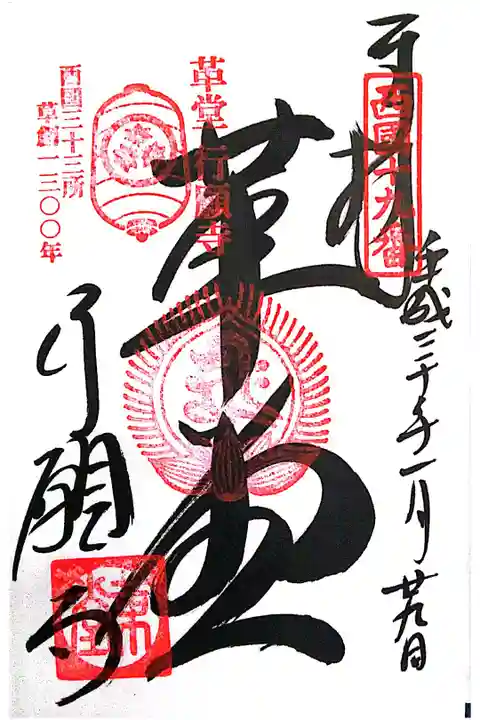 奉拝
西國十九番
平成三十年一月廿九日
革堂
革堂行願寺
西國三十三所
草創一三〇〇年
行願寺